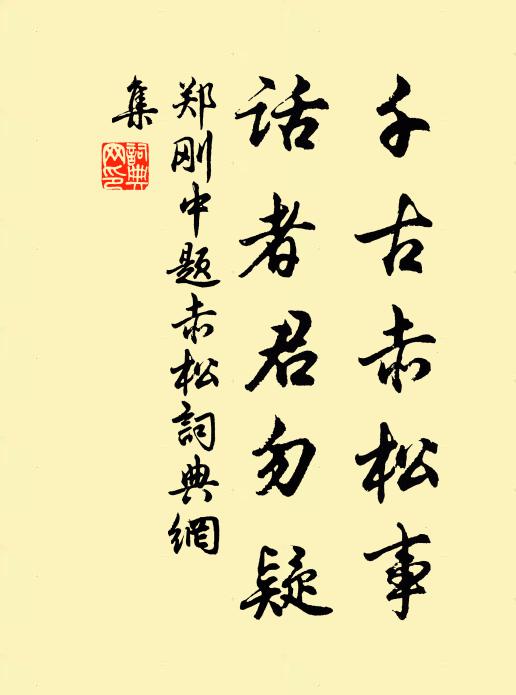 千古赤松事
话者君勿疑
郑刚中题赤松詞典網
集
詞典
网印